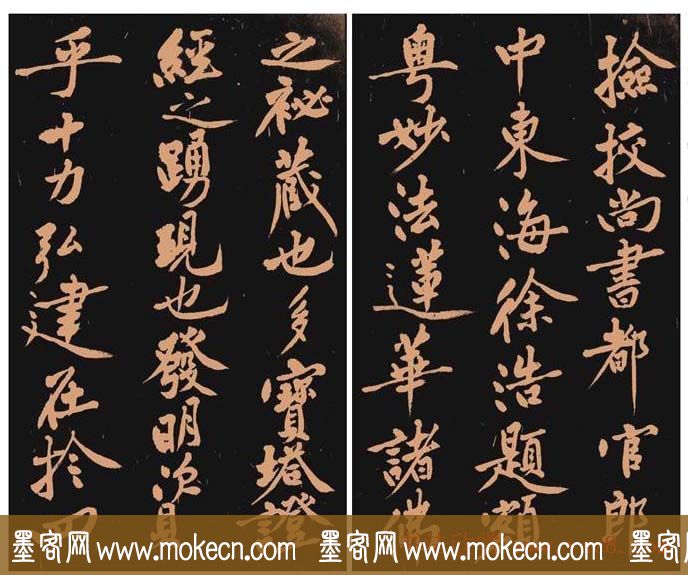 撿挍尚書都官郎
中東海徐浩題額
粵妙法蓮華諸佛
之祕藏也多寶塔證
經之踴現也發明資
乎十力弘建在於四
墨客网 www.mokecn.com 墨客网 www.mokecn.com